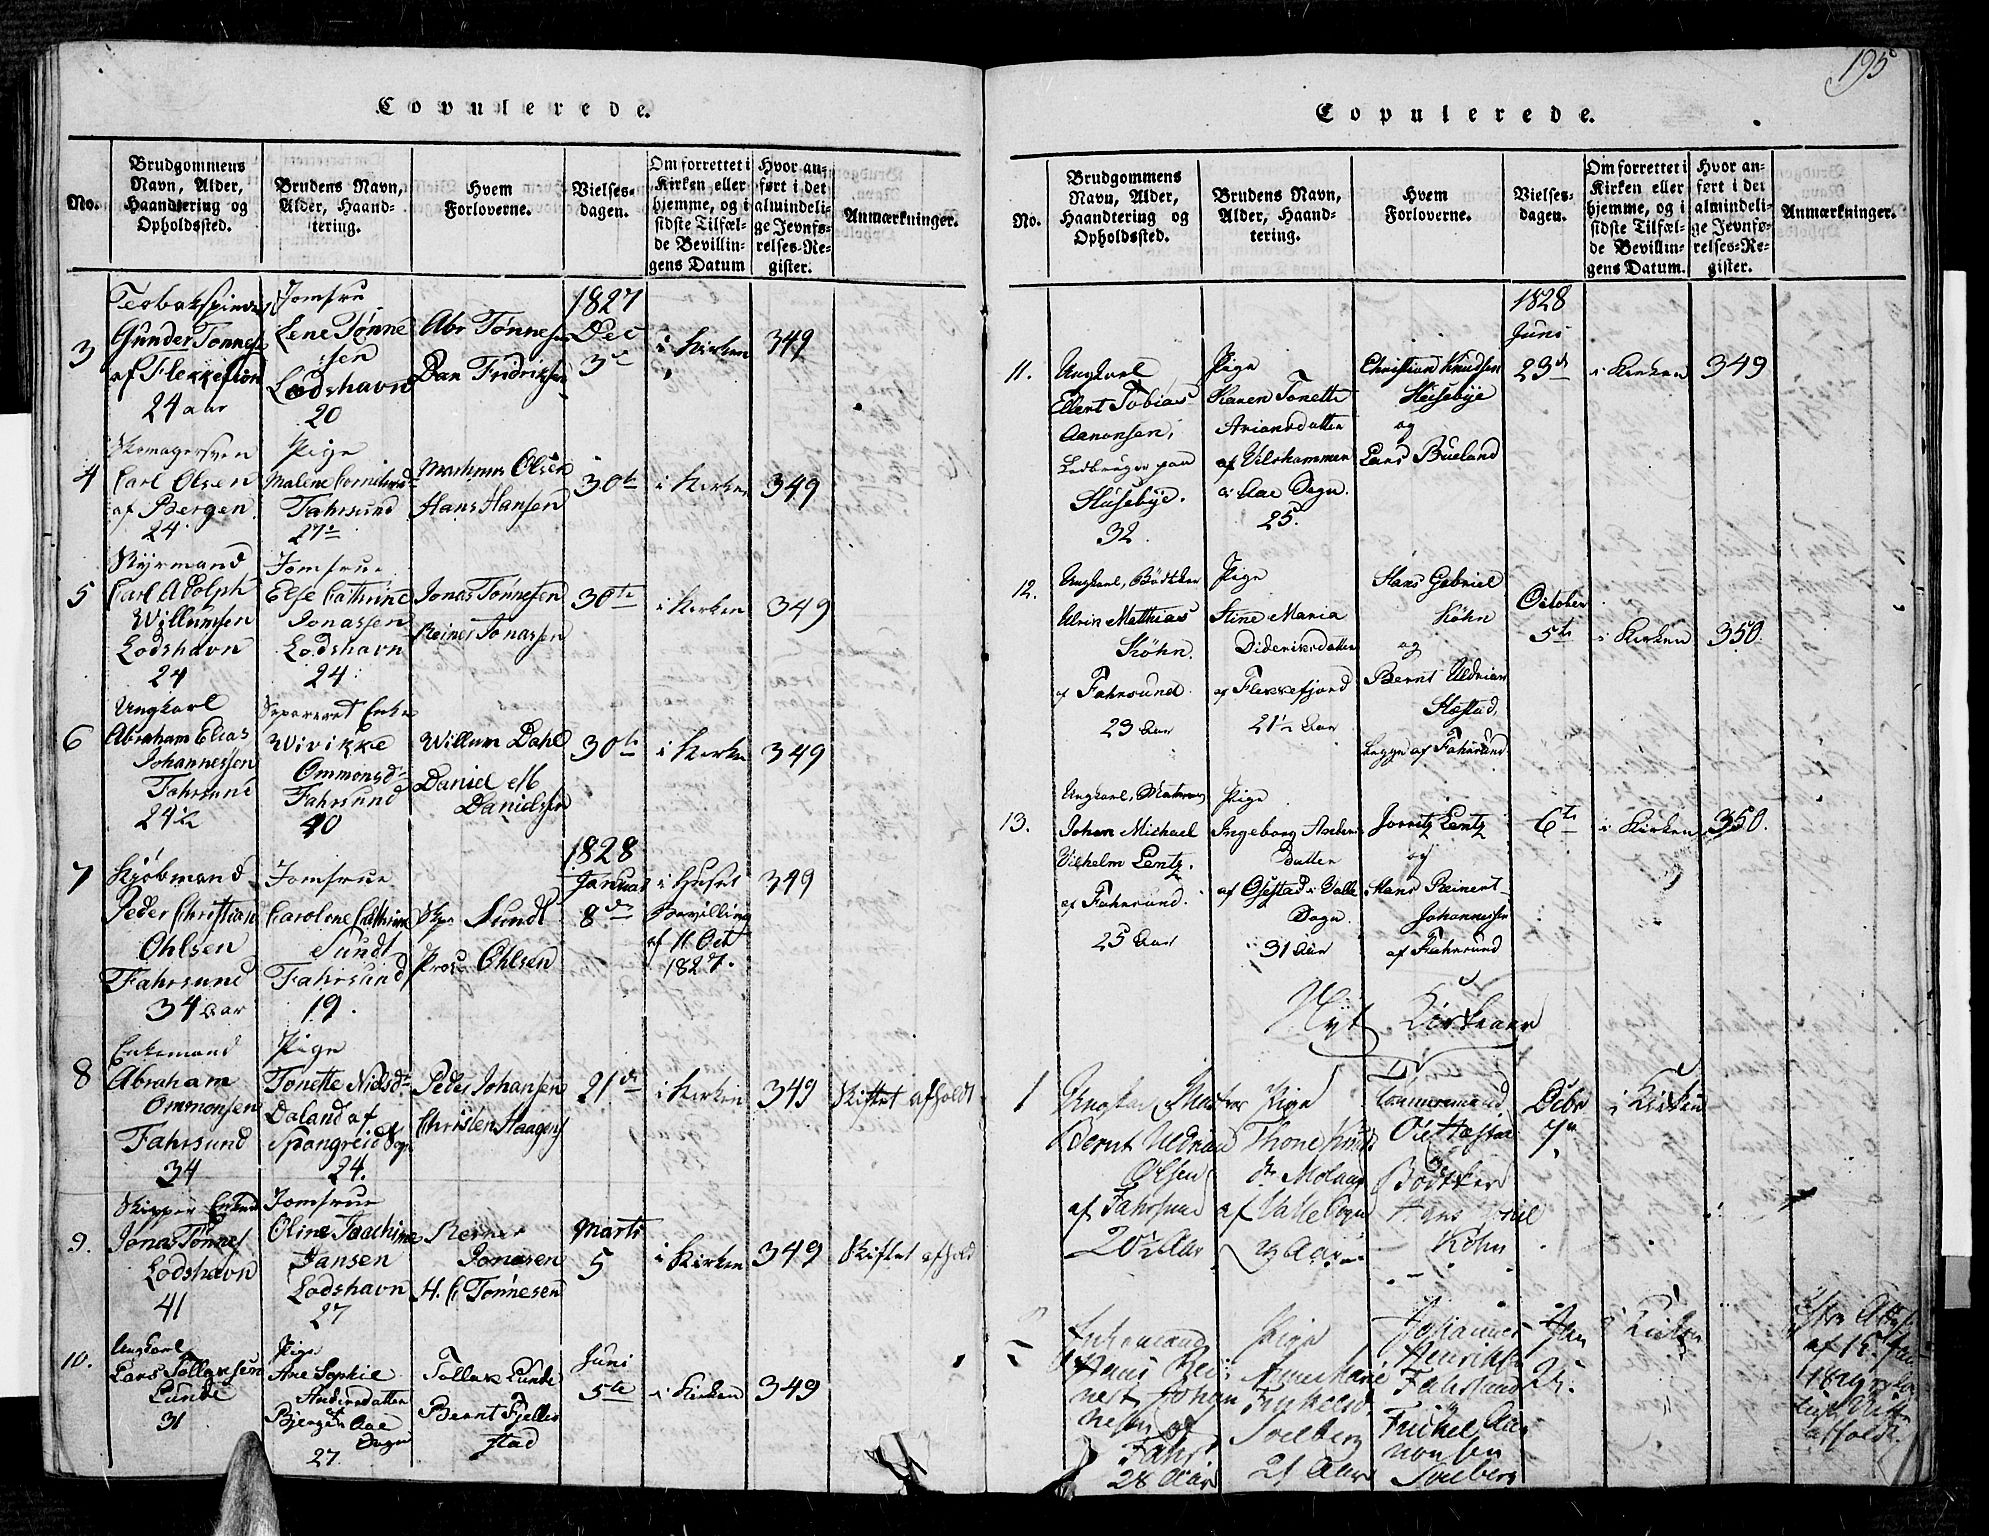 195
Copulerede.
No.
Brudgommens
Navn, Alder,
Haandtering og
Opholdssted.
Brudens Navn,
Alder, Haand-
tering.
Hvem
Forloverne.
Vielses-
dagen.
Om forrettet i
Kirken eller
hjemme, og i
sidste Tilfæl-
de Bevillin-
gens Datum
Hvor an-
ført i det
almindeli-
ge Jevnfø-
relses-Re-
gister.
Anmærkninger.
3
Gunder Tønnes
af Flekkefiord
24 aar
Jomfru
Lene Tønne
sen
Lodshavn
20
Abr Tønnesen
Dan Fridriksen
1827
Dec
3
i Kirken
349
4
Carl Olsen
af Bergen
24
Pige
Malene Cornelius
Fahrsund
27
Mathias Olsen
Hans Hansen
30te
i Kirken
349
5
Styrmand
Carl Adolph
Willumsen
Lodshavn
24
Jomfrue
Else Cathrine
Jonassen
Lodshavn
24
Jonas Tønnesen
Reiner Jonassen
30te
i Kirken
349
6
Ungkarl
Abraham Elias
Johannessen
Fahrsund
24½
Separeret Enke
Wivikke
Ommonsd
Fahrsund
40
Willum Dahl
Daniel M
Danielsen
30te
i Kirken
349
7
Kjøbmand
Peder Christian
Ohlsen
Fahrsund
34 aar
Jomfrue
Carolene Cathrine
Sundt
Fahrsund
19.
Sundt
Ohlsen
1828
Januar
8de
i Huset
Bevilling
af 11 Oct
1827.
349
8
Enkemand
Abraham
Ommonsen
Fahrsund
34
Pige
Tonette Nielsd
Daland af
Spangreid Sogn
24.
Peder Johansen
Christen Haagens
21de
i Kirken
349
Skiftet afholdt
9.
Skipper Enkem
Jonas Tønnes
Lodshavn
41
Jomfrue
Oline Joachime
Jansen
Lodshavn
27
Reiner
Jonasen
H. C Tønnesen
Marts
5
i Kirken
349
Skiftet afhold
10.
Ungkarl
Lars Tollaksen
Lunde
31
Pige
Ane Sophie
Andersdatter
Bjerge Aae
Sogn
27.
Tollak Lunde
Bernt Fjelle
stad
Juni
5te
i Kirken
349
Copulerede.
No.
Brudgommens
Navn, Alder,
Haandtering og
Opholdssted.
Brudens Navn,
Alder, Haand-
tering.
Hvem
Forloverne.
Vielses-
dagen.
Om forrettet i
Kirken eller
hjemme, og i
sidste Tilfæl-
de Bevillin-
gens Datum.
Hvor an-
ført i det
almindeli-
ge Jevnfø-
relses-Re-
gister.
Anmærkninger.
11.
Ungkarl
Ellert Tobias
Aanonsen,
Ledbruger paa
Huusebye.
32.
Pige
Karen Tonette
Ariansdatter
af Vilshammer
i Aae Sogn.
25.
Christian Knudsen
Huusebye
og
Lars Bueland
1828
Juni
23de
i Kirken
349
12.
Ungkarl, Bødtker
Ulrik Matthias
Køhn.
af Fahrsund.
23 Aar
Pige
Stine Maria
Didriksdatter
af Flekkefjord
21½ Aar
Hans Gabriel
Køhn
og
Bernt Uldrian
Hæstad,
begge af Fahrsund
October
5te
i Kirken
350.
13.
Ungkarl, Matros
Johan Michael
Vilhelm Lentz.
af Fahrsund.
25 Aar
Pige
Ingeborg Anders
datter
af Opstad i Valle
Sogn.
31 Aar
Jørritz Lentz
og
Hans Reinert
Johannessen
af Fahrsund
6te
i Kirken
350.
Nyt Kirkeaar
1
Ungkarl
Bernt Uldrian
Olsen
af Fahrsund
20½ Aar
Pige
Thone Knuds
dr Moland
af Valle Sogn
Aar
Tømmermand
Ole Hæstad
og
Bødtker
Hans
Køhn
Decbr
7
i Kirken
Enkemand
Hans Rei
nert Johan
nesen
af
Fahrs
28 Aar
Pige
Anne Marie
Svelberg
21 Aar
Johannes
Henriksen
Fahrsund
og
Aa
nonsen
Svelberg
Jan
i Kirken
af 15 Jan
afholdt.